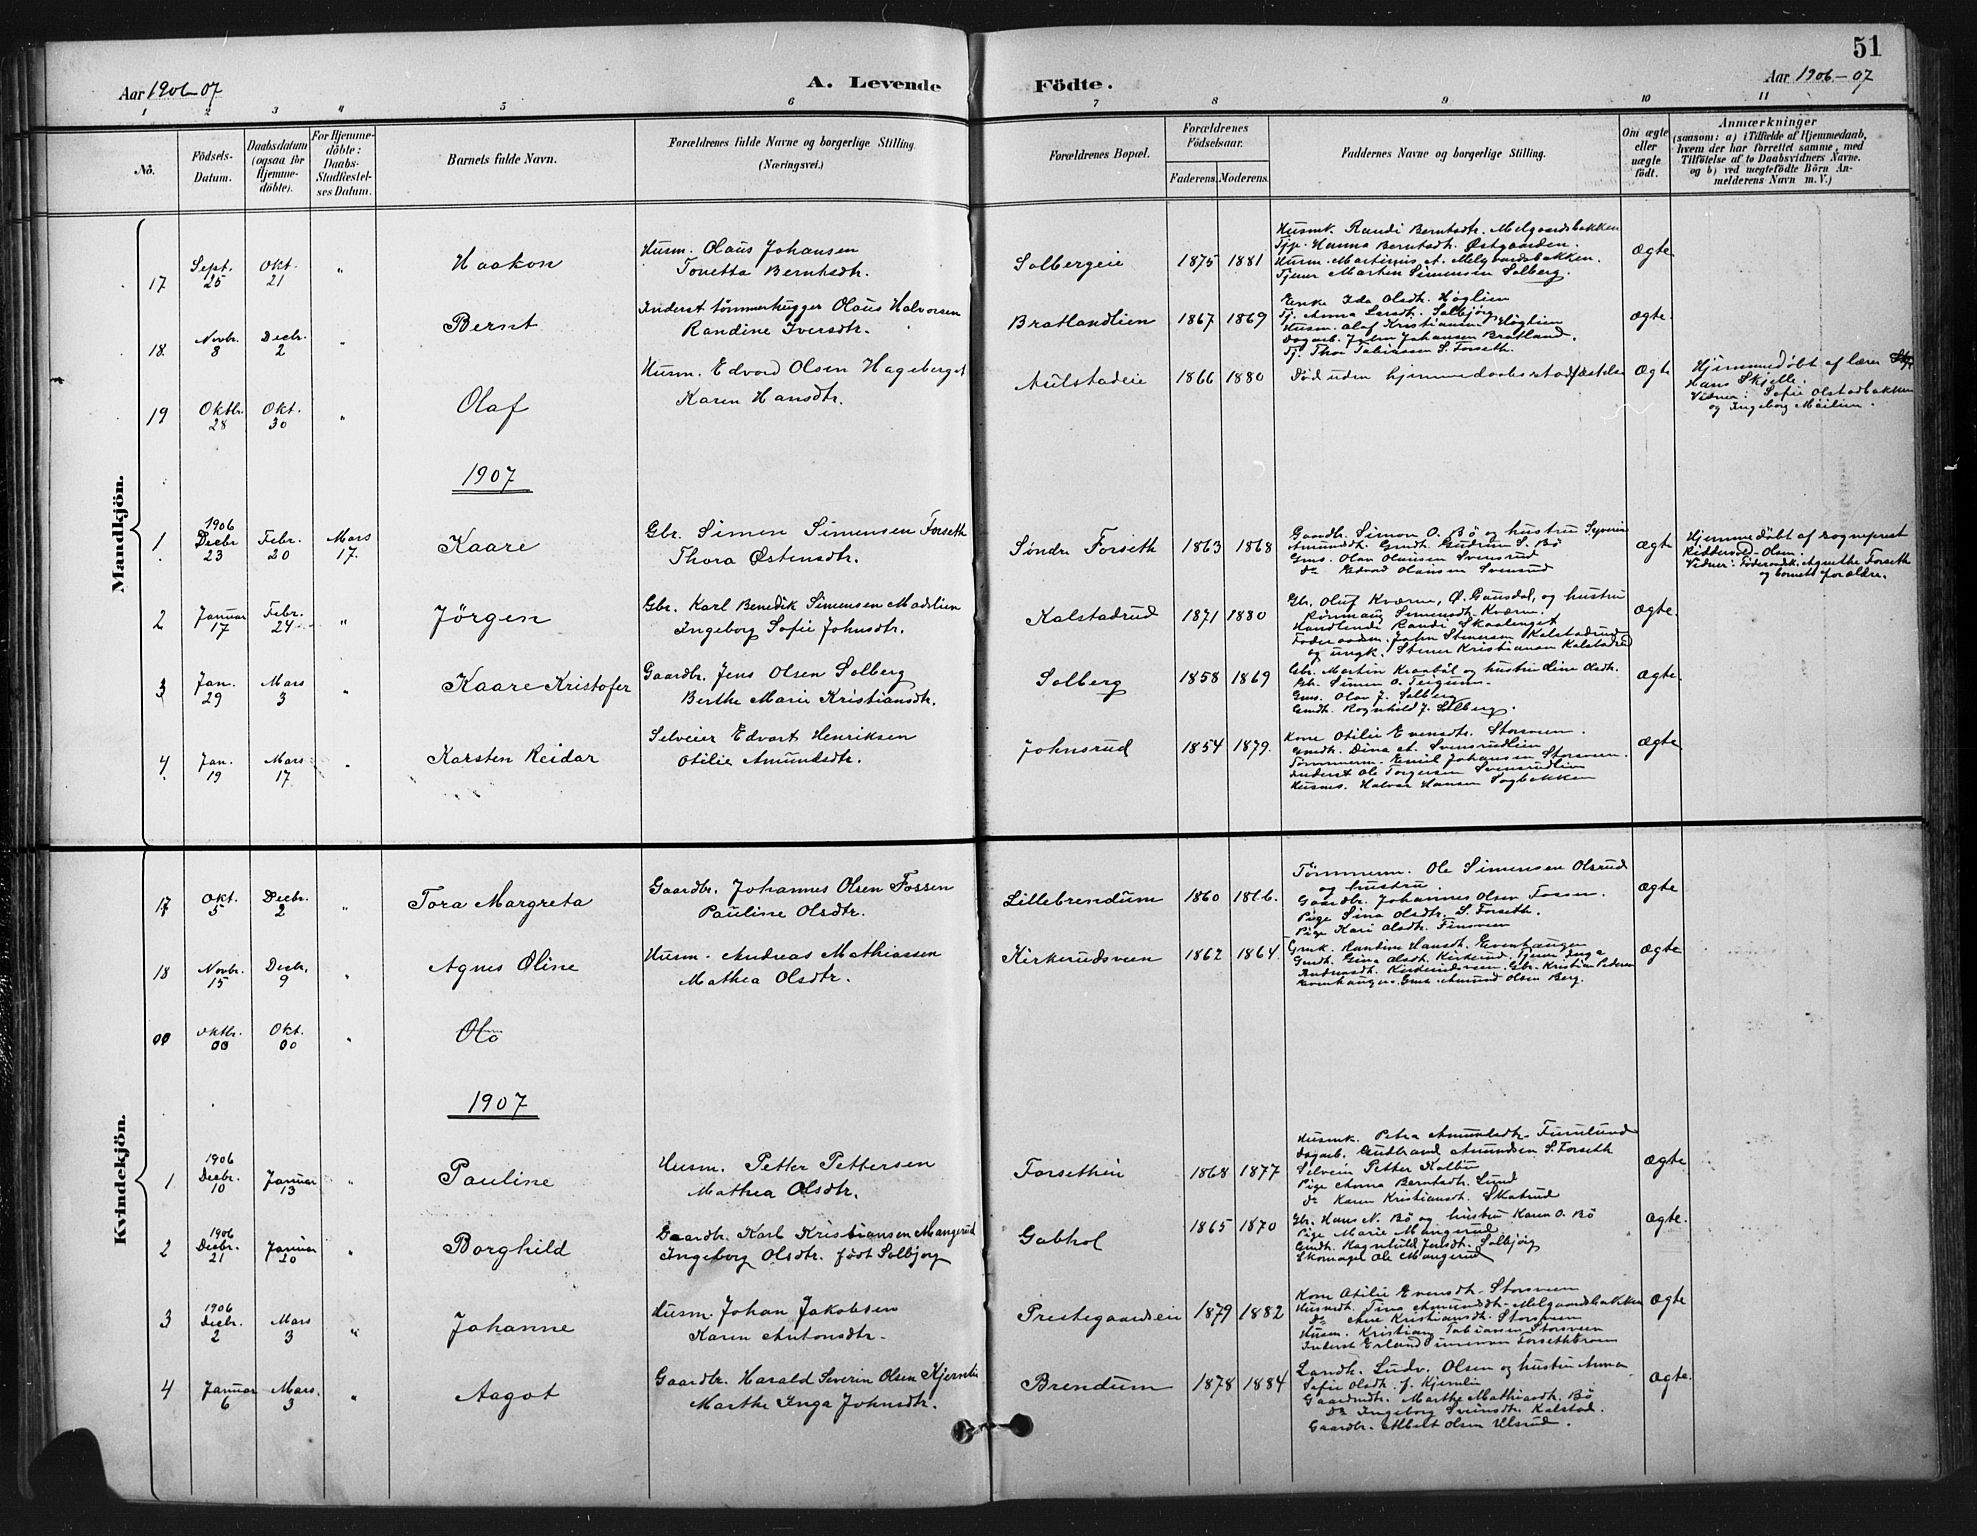 51
Aar 1906-07
A. Levende
Födte.
Aar 1906-07
1 2 3 4 5 6 7 8 9 10 11
No.
Födsels-
Datum.
Daabsdatum
(ogsaa for
Hjemme-
döbte).
For Hjemme-
döbte:
Daabs-
Stadfæstel-
ses Datum.
Barnets fulde Navn.
Forældrenes fulde Navne og borgerlige Stilling.
(Næringsvei.)
Forældrenes Bopæl.
Forældrenes
Födselsaar.
Faderens. Moderens.
Faddernes Navne og borgerlige Stilling.
Om ægte
eller
uægte
födt.
Anmærkninger
(saasom: a) i Tilfælde af Hjemmedaab,
hvem der har forrettet samme, med
Tilföielse af to Daabsvidners Navne,
og b) ved uægtefödte Börn An-
melderens Navn m. V.)
Mandkjön.
17 Sept. 25 Okt. 21 " Haakon
Husm. Olaus Johansen
Tonetta Berntsdtr.
Solbergeie 1875 1881
Husmk. Randi Berntsdtr. Melgaardsbakken
Pige Hanna Berntsdtr. Østgaarden.
Husm. Martinus A. Melgaardsbakken.
Tjener Martin Simensen Solberg.
Ægte
18. Novbr. 8 Decbr. 2 " Bernt
Inderst tømmerhugger Olaus Halvorsen
Randine Iversdtr.
Bratlandlien 1867 1869
Enke Ida Olsdtr. Høglien
Tj. Anna Larsdtr. Solbjørg
Husm. Olaf Kristiansen Høglien
Dagarb. John Johansen Bratland.
Tj. Thor Tobiassen S. Forseth.
Ægte.
19 Oktbr. 28 Okt. 30 " Olaf
Husm. Edvard Olsen Hageberget
Karen Hansdtr.
Aulstadeie 1866 1880
Død uden hjemmedaabsstadfæstelse
Ægte
Hjemmedøbt af lærer
Hans Skjelle.
Vidner: Sofie Olstadbakken
og Ingeborg Moilien.
1907
1 1906 Decbr 23 Febr. 20 Mars 17. Kaare
Gbr. Simen Simensen Forseth
Thora Østensdtr.
Søndr Forseth 1863 1868
Gaardbr. Simon O. Bø og hustru Syverin
Amundsdt. Gmdt. Gudrun S. Bø
Gms. Olav Olausen Svensrud
do Edvard Olausen Svensrud
Ægte
Hjemmedøbt af sogneprest
Riddervold-Olsen.
Vidner: Føderaadsk. Agnethe Forseth
og barnets forældre.
2 Januar 17 Febr. 24 " Jörgen
Gbr. Karl Benedik Simensen Madslien
Ingeborg Sofie Johnsdtr.
Kalstadrud 1871 1880
Gbr. Oluf Kværne, Ø. Gausdal, og hustru
Rønnaug Simensdtr. Kværne.
Handlende Randi Skaalenget
Føderaadsm. John Stenersen Kalstadrud
og ungk. Stener Kristiansen Kalstadrud
Ægte.
3 Jan. 29 Mars 3 " Kaare Kristofer
Gaardbr. Jens Olsen Solberg
Berthe Marie Kristiansdtr.
Solberg 1858 1869
Gbr. Martin Kraabøl og hustru Eline Olsdt.
Gbr. Simen O. Teigum.
Gms. Olav J. Solberg
Gmdt. Ragnhild J. Solberg.
Ægte.
4 Jan. 19 Mars 17 " Karsten Reidar
Selveier Edvart Henriksen
Otilie Amundsdtr.
Johnsrud 1854 1879.
Kone Otilie Evensdtr. Storsveen.
Gmdt. Dina A. Svensrudlien
Tømmerm. Emil Johansen Storsveen.
Inderst Ole Torgersen Svensrudlien
Husms. Halvor Hansen Sagbakken
Ægte
Kvindekjön.
17 Okt. 5 Decbr. 2 " Tora Margreta
Gaardbr. Johannes Olsen Fossen
Pauline Olsdtr.
Lillebrendum 1860 1866.
Tømmerm. Ole Simensen Olsrud
og hustru.
Gaardbr. Johannes Olsen Fossen.
Pige Sina Olsdtr. S. Forseth.
Pige Kari Olsdtr. Finsveen
Ægte
18 Novbr. 15 Decbr. 9 " Agnes Oline
Husm. Andreas Mathiassen
Mathea Olsdtr.
Kirkerudsveen 1862 1864.
Gmk. Randine Hansdt. Evenhaugen
Gmdt. Gina Olsdt. Kirkerud. Tjener Inga
Andreasdt. Kirkerudsveen. Gbr. Kristian Pedersen
Evenhaugen. Gms. Amund Olsen Berg.
Ægte
00 Oktbr. 00 Okt. 00 " Olo
1907
1 1906 Decbr. 10 Januar 13 " Pauline
Husm. Petter Pettersen
Mathea Olsdtr.
Forsethlien 1868 1877
Husmk. Petra Amundsdtr. Furulund
Dagarb. Gudbrand Amundsen S. Forseth
Selveier Petter Kolbu
Pige Anna Berntsdtr. Lund
do Karen Kristiansdt. Skatrud
Ægte
2 1906 Decbr. 21 Januar 20 " Borghild
Gaardbr. Karl Kristiansen Mangerud
Ingeborg Olsdtr. født Solbjørg
Gabhol 1865 1870
Gbr. Hans N. Bø og hustru Karen O. Bø
Pige Marie Mangerud
Gmdt. Ragnhild Jensdt. Solbjørg
Skomager Ole Mangerud
Ægte.
3 1906 Decbr. 2 Mars 3 " Johanne
Husm. Johan Jakobsen
Karen Antonsdtr.
Prestegaardseie 1879 1882
Kone Otilie Evensdt. Storsveen
Husmdt. Tina Amundsdt. Melgaardsbakken
do Ane Kristiansdt. Storsveen
Husm. Kristian Tobiassen Storsveen
Inderst Erland Simensen Forsethbroen
Ægte
4 Januar 6 Mars 3 " Aagot
Gaardbr. Harald Severin Olsen Kjernlie
Marthe Inga Johnsdtr.
Brendum 1878 1884
Landh. Ludv. Olsen og hustru Anna
Sofie Olsdt. f. Kjernlie
Gaardmdt. Marthe Mathiasdt. Bø
do Ingeborg Svensdt. Kalstad.
Gaardbr. Albert Olsen Ulsrud.
Ægte.